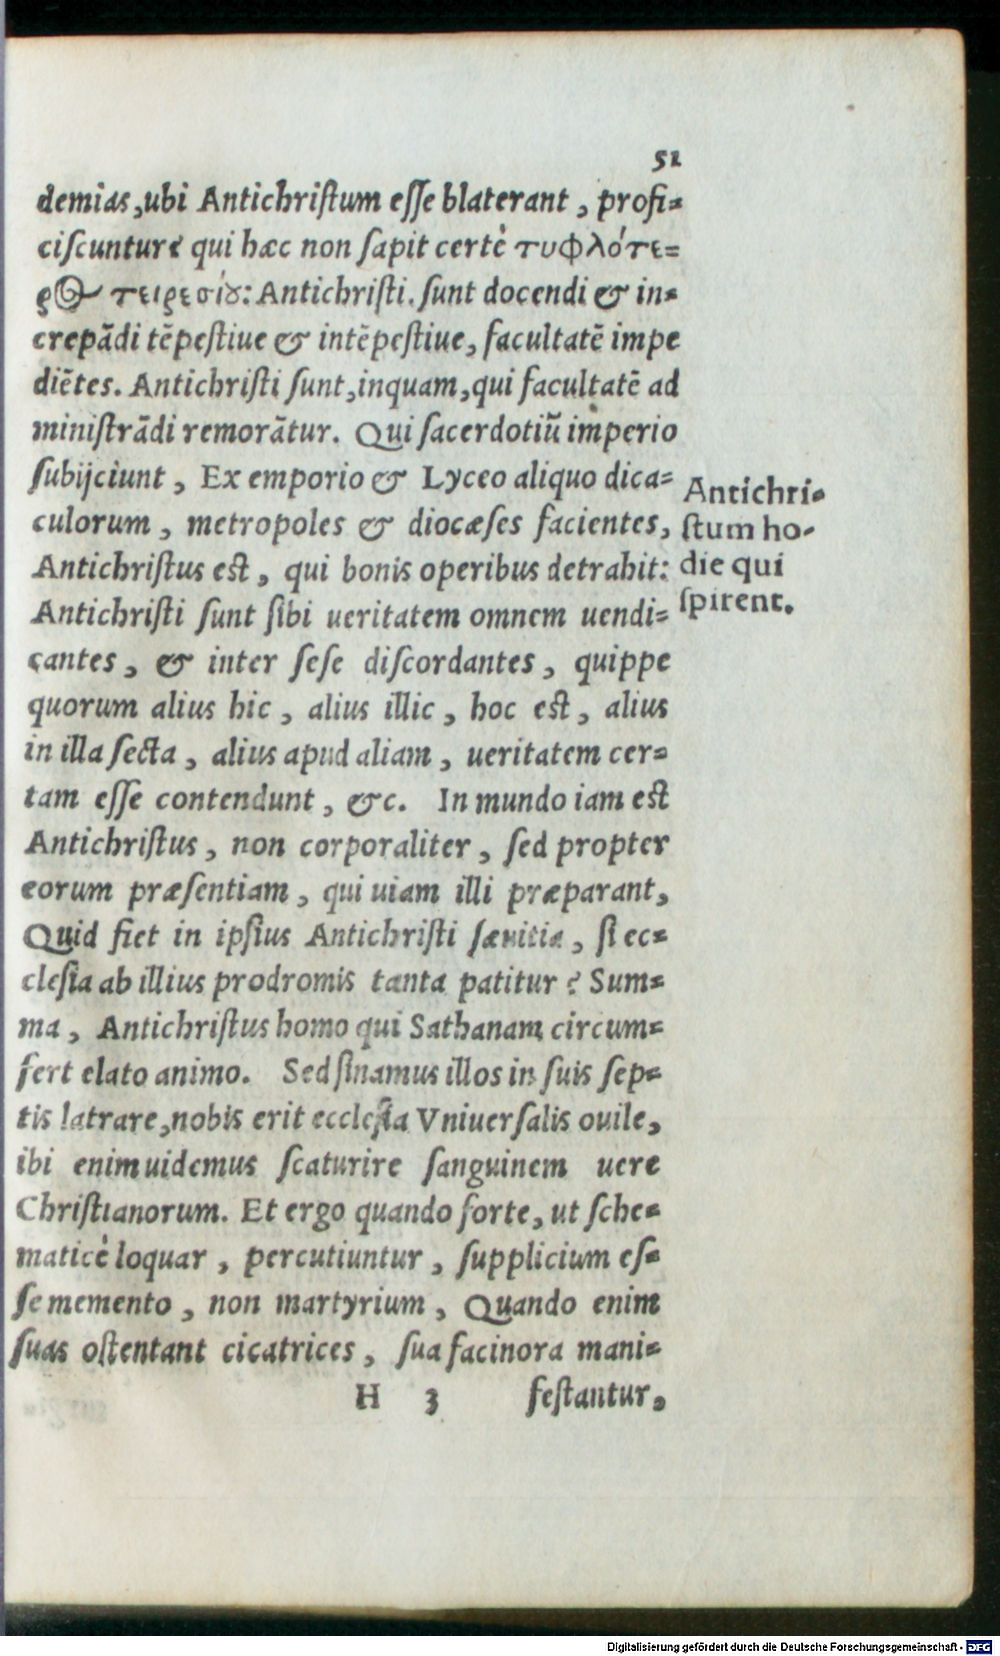 51
demias,ubi Antichristum esse blaterant, profi=
ciscuntur? qui hæc non sapit certè τυφλότε=
ρος τειρεσίου: Antichristi. sunt docendi & in=
crepãdi tẽpestiue & intẽpestiue, facultatẽ impe
diẽtes. Antichristi sunt,inquam,qui facultatẽ ad
ministrãdi remorãtur. Qui sacerdotiũ imperio
subijciunt, Ex emporio & Lyceo aliquo dica=
culorum, metropoles & diocæses facientes,
Antichristus est, qui bonis operibus detrahit:
Antichristi sunt sibi ueritatem omnem uendi=
cantes, & inter sese discordantes, quippe
quorum alius hic, alius illic, hoc est, alius
in illa secta, alius apud aliam, ueritatem cer=
tam esse contendunt, &c. In mundo iam est
Antichristus, non corporaliter, sed propter
eorum præsentiam, qui uiam illi præparant,
Quid fiet in ipsius Antichristi sæuitia, si ec=
clesia ab illius prodromis tanta patitur? Sum=
ma, Antichristus homo qui Sathanam circum=
fert elato animo. Sed sinamus illos in suis sep=
tis latrare,nobis erit ecclesia Vniuersalis ouile,
ibi enim uidemus scaturire sanguinem uere
Christianorum. Et ergo quando forte, ut sche=
maticè loquar, percutiuntur, supplicium es=
se memento, non martyrium, Quando enim
suas ostentant cicatrices, sua facinora mani=
H 3 festantur,
Antichri=
stum ho-
die qui
spirent.
Digitalisierung gefördert durch die Deutsche Forschungsgemeinschaft - DFG